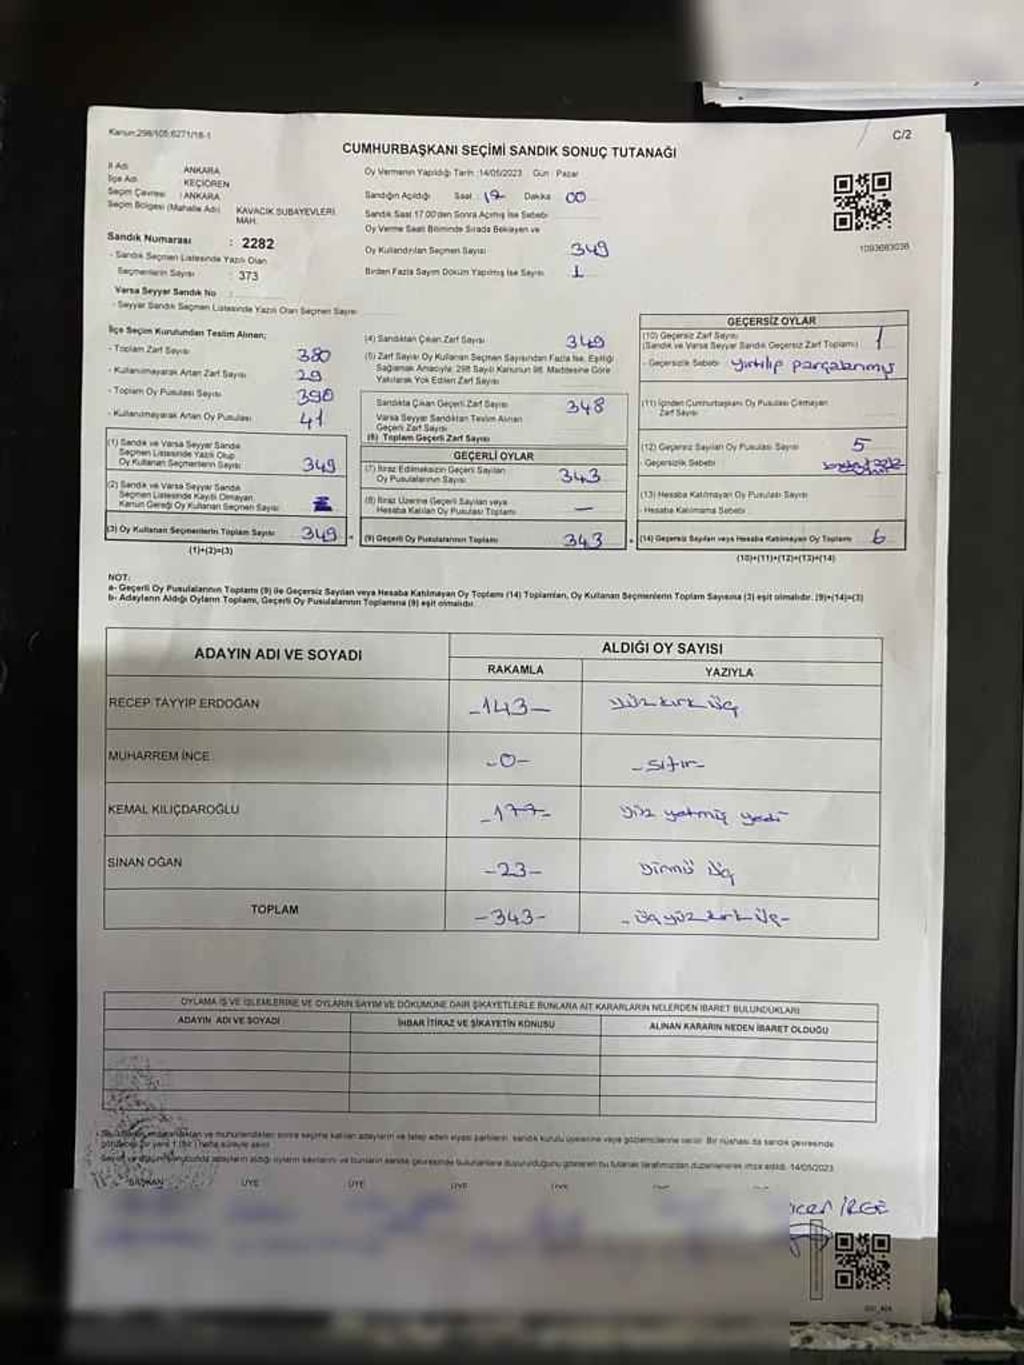 Kanun:298/105;6271/18-1
C/2
CUMHURBAŞKANI SEÇİMİ SANDIK SONUÇ TUTANAĞI
İl Adı ANKARA
İlçe Adı KEÇİÖREN
Seçim Çevresi : ANKARA
Seçim Bölgesi (Mahalle Adı) KAVACIK SUBAYEVLERİ MAH.
Sandık Numarası : 2282
- Sandık Seçmen Listesinde Yazılı Olan
Seçmenlerin Sayısı : 373
Varsa Seyyar Sandık No :
- Seyyar Sandık Seçmen Listesinde Yazılı Olan Seçmen Sayısı
Oy Vermenin Yapıldığı Tarih :14/05/2023 Gün : Pazar
Sandığın Açıldığı Saat : 17 Dakika 00
Sandık Saat 17.00'den Sonra Açılmış İse Sebebi
Oy Verme Saati Bitiminde Sırada Bekleyen ve
Oy Kullandırılan Seçmen Sayısı 349
Birden Fazla Sayım Döküm Yapılmış İse Sayısı 1
1093683036
İlçe Seçim Kurulundan Teslim Alınan;
- Toplam Zarf Sayısı 380
- Kullanılmayarak Artan Zarf Sayısı 29
- Toplam Oy Pusulası Sayısı 390
- Kullanılmayarak Artan Oy Pusulası 41
(1) Sandık ve Varsa Seyyar Sandık
Seçmen Listesinde Yazılı Olup
Oy Kullanan Seçmenlerin Sayısı 349
(2) Sandık ve Varsa Seyyar Sandık
Seçmen Listesinde Kayıtlı Olmayan,
Kanun Gereği Oy Kullanan Seçmen Sayısı
(3) Oy Kullanan Seçmenlerin Toplam Sayısı 349
(1)+(2)=(3)
(4) Sandıktan Çıkan Zarf Sayısı 349
(5) Zarf Sayısı Oy Kullanan Seçmen Sayısından Fazla İse, Eşitliği
Sağlamak Amacıyla; 298 Sayılı Kanunun 98. Maddesine Göre
Yakılarak Yok Edilen Zarf Sayısı
Sandıkta Çıkan Geçerli Zarf Sayısı 348
Varsa Seyyar Sandıktan Teslim Alınan
Geçerli Zarf Sayısı
(6) Toplam Geçerli Zarf Sayısı
GEÇERLİ OYLAR
(7) İtiraz Edilmeksizin Geçerli Sayılan
Oy Pusulalarının Sayısı 343
(8) İtiraz Üzerine Geçerli Sayılan veya
Hesaba Katılan Oy Pusulası Toplamı —
(9) Geçerli Oy Pusulalarının Toplamı 343
GEÇERSİZ OYLAR
(10) Geçersiz Zarf Sayısı 1
(Sandık ve Varsa Seyyar Sandık Geçersiz Zarf Toplamı)
- Geçersizlik Sebebi yırtılıp parçalanmış
(11) İçinden Cumhurbaşkanı Oy Pusulası Çıkmayan
Zarf Sayısı
(12) Geçersiz Sayılan Oy Pusulası Sayısı 5
- Geçersizlik Sebebi
(13) Hesaba Katılmayan Oy Pusulası Sayısı
- Hesaba Katılmama Sebebi
(14) Geçersiz Sayılan veya Hesaba Katılmayan Oy Toplamı 6
(10)+(11)+(12)+(13)=(14)
NOT:
a- Geçerli Oy Pusulalarının Toplamı (9) ile Geçersiz Sayılan veya Hesaba Katılmayan Oy Toplamı (14) Toplamları, Oy Kullanan Seçmenlerin Toplam Sayısına (3) eşit olmalıdır. (9)+(14)=(3)
b- Adayların Aldığı Oyların Toplamı, Geçerli Oy Pusulalarının Toplamına (9) eşit olmalıdır.
ADAYIN ADI VE SOYADI
ALDIĞI OY SAYISI
RAKAMLA YAZIYLA
RECEP TAYYİP ERDOĞAN -143- yüz kırk üç
MUHARREM İNCE -0- -sıfır-
KEMAL KILIÇDAROĞLU -177- yüz yetmiş yedi
SİNAN OĞAN -23- yirmi üç
TOPLAM -343- -üçyüz kırk üç-
OYLAMA İŞ VE İŞLEMLERİNE VE OYLARIN SAYIM VE DÖKÜMÜNE DAİR ŞİKAYETLERLE BUNLARA AİT KARARLARIN NELERDEN İBARET BULUNDUKLARI
ADAYIN ADI VE SOYADI İHBAR İTİRAZ VE ŞİKAYETİN KONUSU ALINAN KARARIN NEDEN İBARET OLDUĞU
sonra seçime katılan adayların ve talep eden siyasi partilerin, sandık kurulu üyelerine veya gözlemcilerine verilir. Bir nüshası da sandık çevresinde
14/05/2023
BAŞKAN ÜYE ÜYE ÜYE ÜYE
İRGE